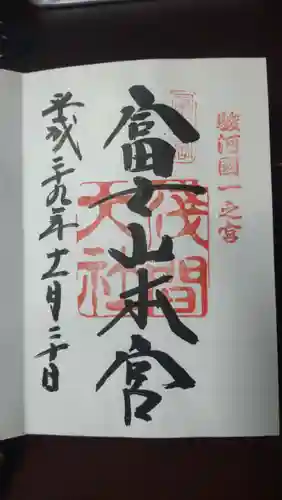 駿河国一之宮
富士山本宮
浅間大社
平成二十九年十一月二十日